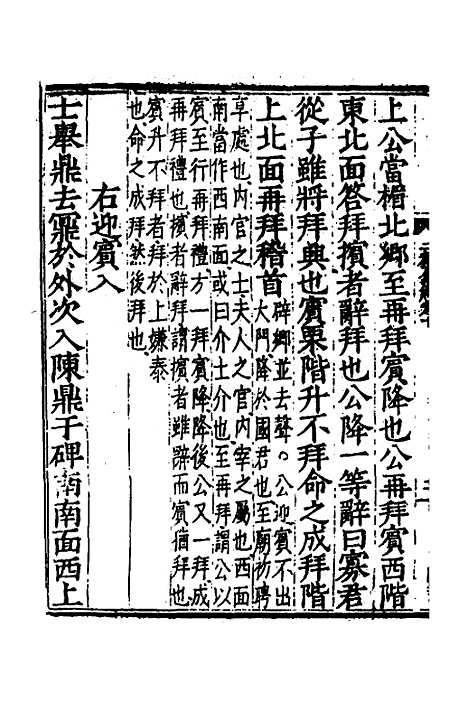 上公當楣北鄉至再拜賓降也公再拜賓西階
東北面答拜擯者辭拜也公降一等辭曰寡君
從子雖將拜興也賓栗階升不拜命之成拜階
上北面再拜稽首
辟鄉並去聲。公迎賓不出
大門降於國君也至廟初聘
草處也内官之士夫人之官内宰之屬也西面
南當作西南面或曰介士介也至再拜謂公以
賓至行再拜禮方一拜賓降降後公又一拜成
再拜禮也擯者辭拜謂擯者雖辭而賓猶拜也
賓升不拜者拜於上嫌泰
也命之成拜然後拜也
右迎賓入
士舉鼎去鼏於外次入陳鼎于碑南南面西上